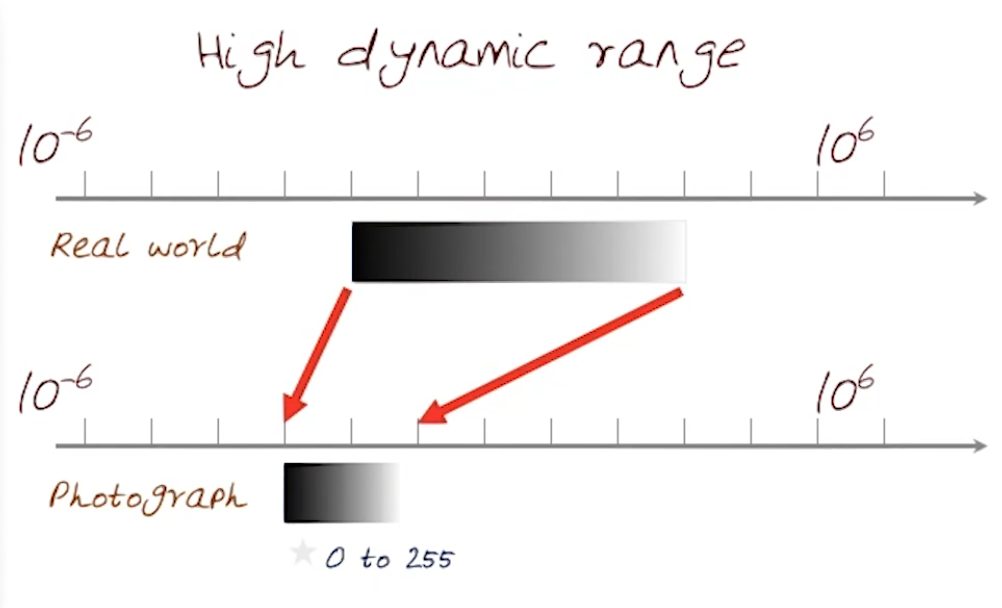 High dynamic range
10⁻⁶ 10⁶
Real world
10⁻⁶ 10⁶
Photograph
0 to 255